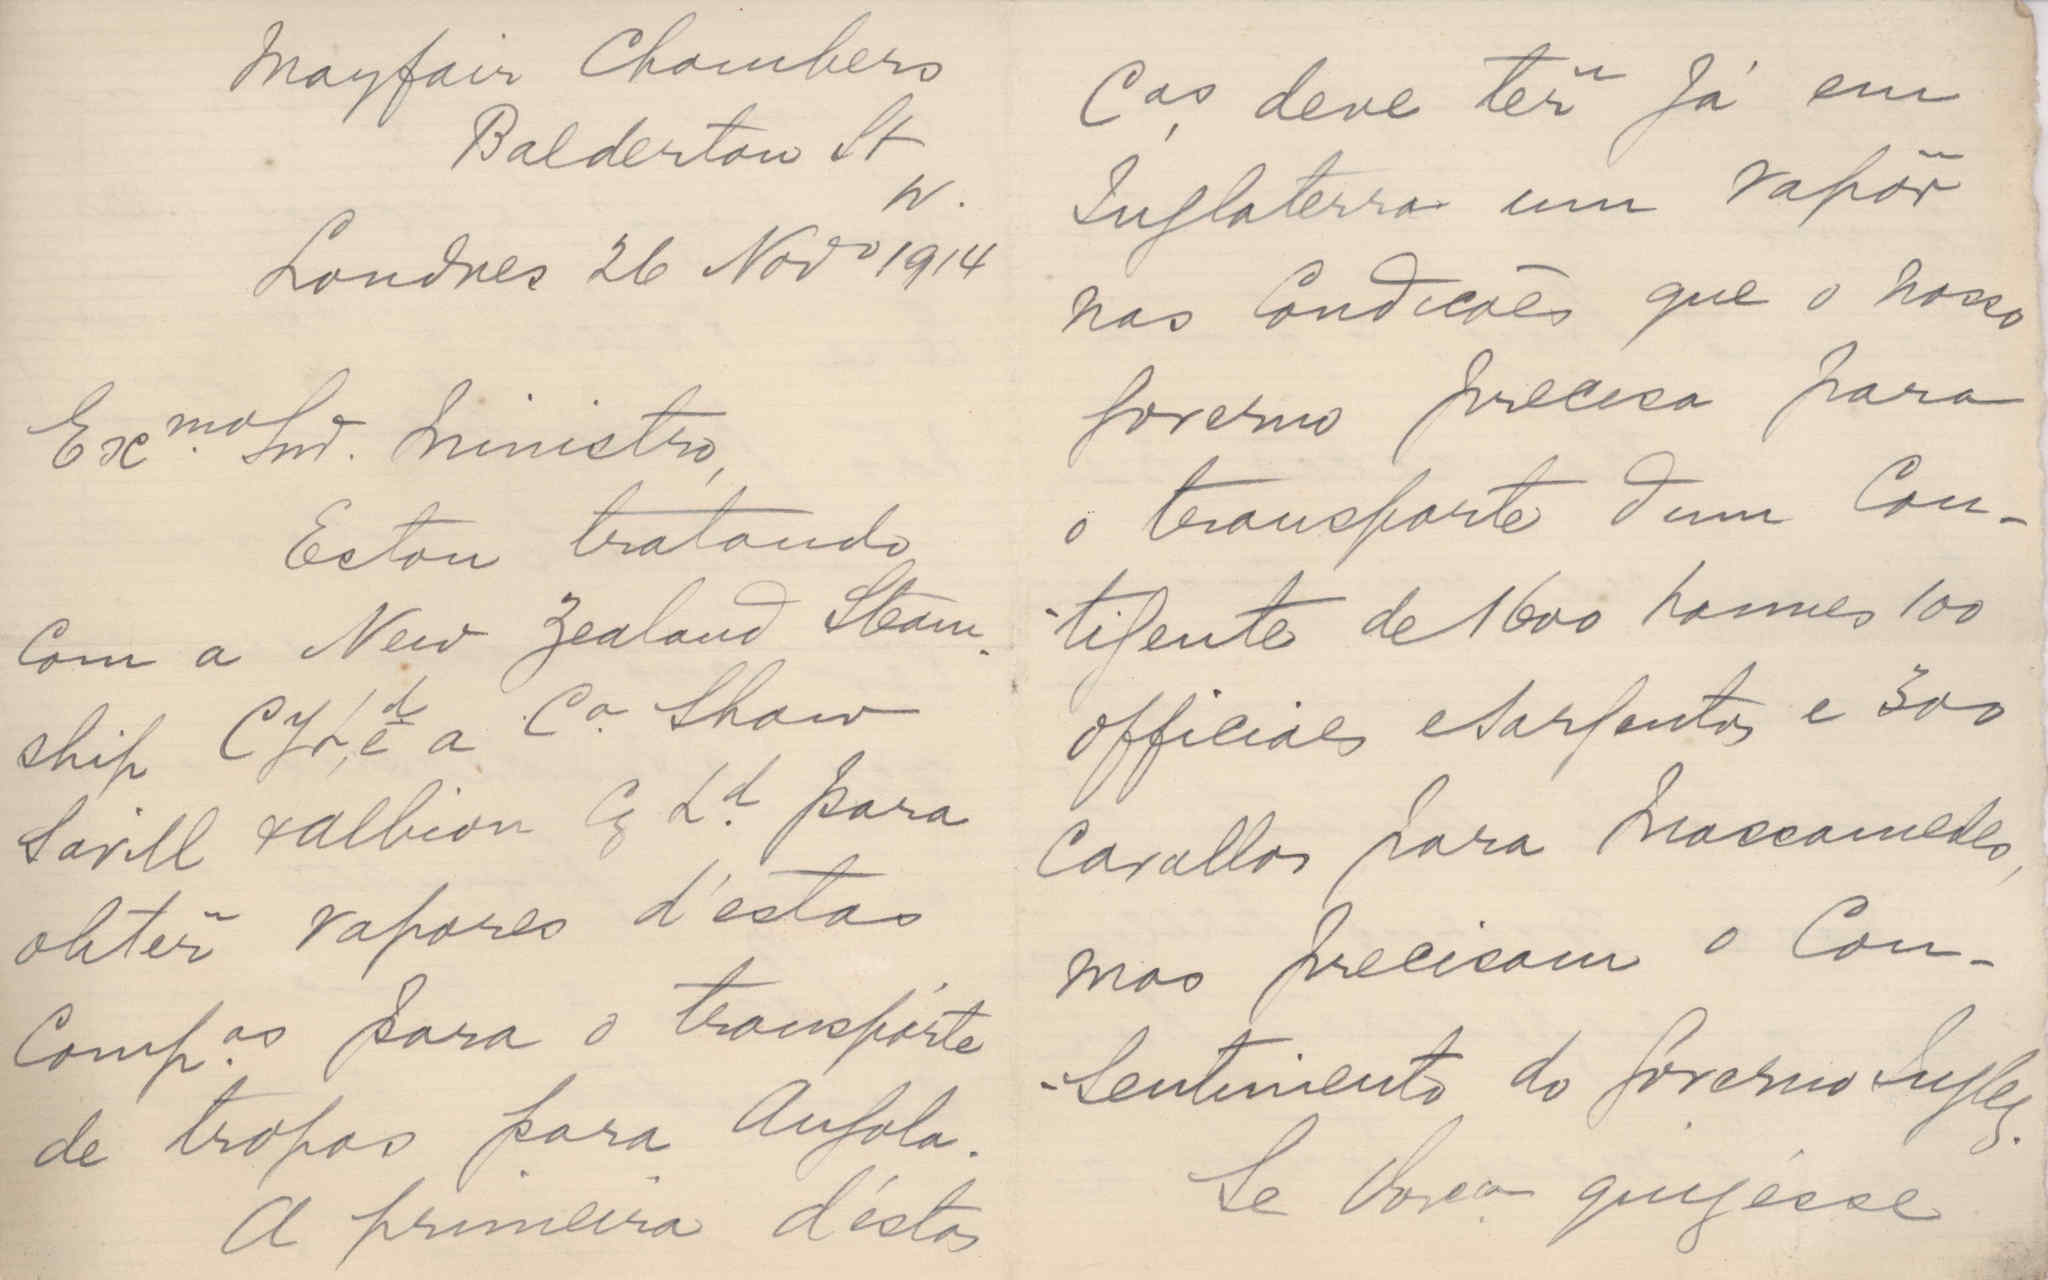 Mayfair Chambers
Balderton St
W.
Londres 26 Novo 1914
Exmo. Snr. Ministro,
Estou tratando
com a New Zealand Steam-
ship Cy Ld, e a Ca. Shaw
Savill & Albion Cy Ld. para
obter vapores d'estas
Comp.as para o transpórte
de tropas para Angola.
A primeira d'éstas
Cas, deve ter já em
Inglaterra um vapor
nas Condicões que o nosso
Governo precisa para
o transporte dum Con-
-tigente de 1600 homes 100
officiaes e Sargentos e 300
Cavallos para Mossamedes,
mas precisam o Con-
-sentimento do Governo Inglez.
Se Voxca. quizésse